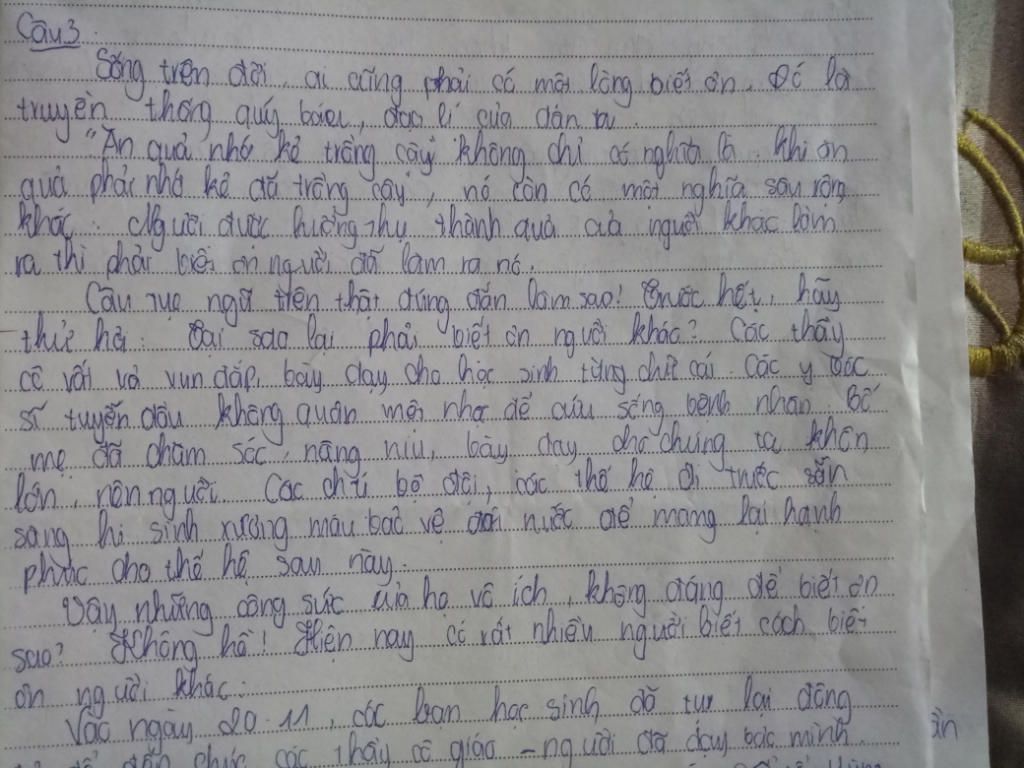 Câu 3.
Sống trên đời, ai cũng phải có một lòng biết ơn. Đó là
truyền thống quý báu, đạo lí của dân ta.
"Ăn quả nhớ kẻ trồng cây" không chỉ có nghĩa là khi ăn
quả phải nhớ kẻ đã trồng cây, nó còn có một nghĩa sâu rộng
khác: Người được hưởng thụ thành quả của người khác làm
ra thì phải biết ơn người đã làm ra nó.
Câu tục ngữ trên thật đúng đắn làm sao! Trước hết, hãy
thử hỏi: Tại sao lại phải biết ơn người khác? Các thầy
cô vất vả vun đắp, bày dạy cho học sinh từng chữ cái. Các y bác
sĩ tuyến đầu không quản mệt nhọc để cứu sống bệnh nhân. Bố
mẹ đã chăm sóc, nâng niu, bày dạy cho chúng ta khôn
lớn, nên người. Các chú bộ đội, các thế hệ đi trước sẵn
sàng hi sinh xương máu bảo vệ đất nước để mang lại hạnh
phúc cho thế hệ sau này.
Vậy những công sức của họ vô ích, không đáng để biết ơn
sao? Không hề! Hiện nay có rất nhiều người biết cách biết
ơn người khác.
Vào ngày 20-11, các bạn học sinh đã tựu lại đông
các thầy cô giáo - người đã dạy bảo mình.